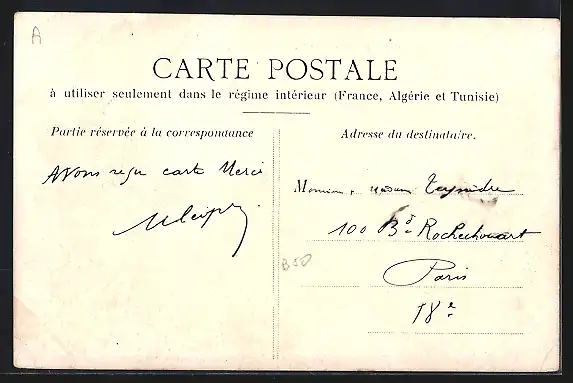 A
CARTE POSTALE
à utiliser seulement dans le régime intérieur (France, Algérie et Tunisie)
Partie réservée à la correspondance
Adresse du destinataire.
Avons reçu carte Merci
Monsieur, Madame
100 Bd Rochechouart
Paris
18e
B50